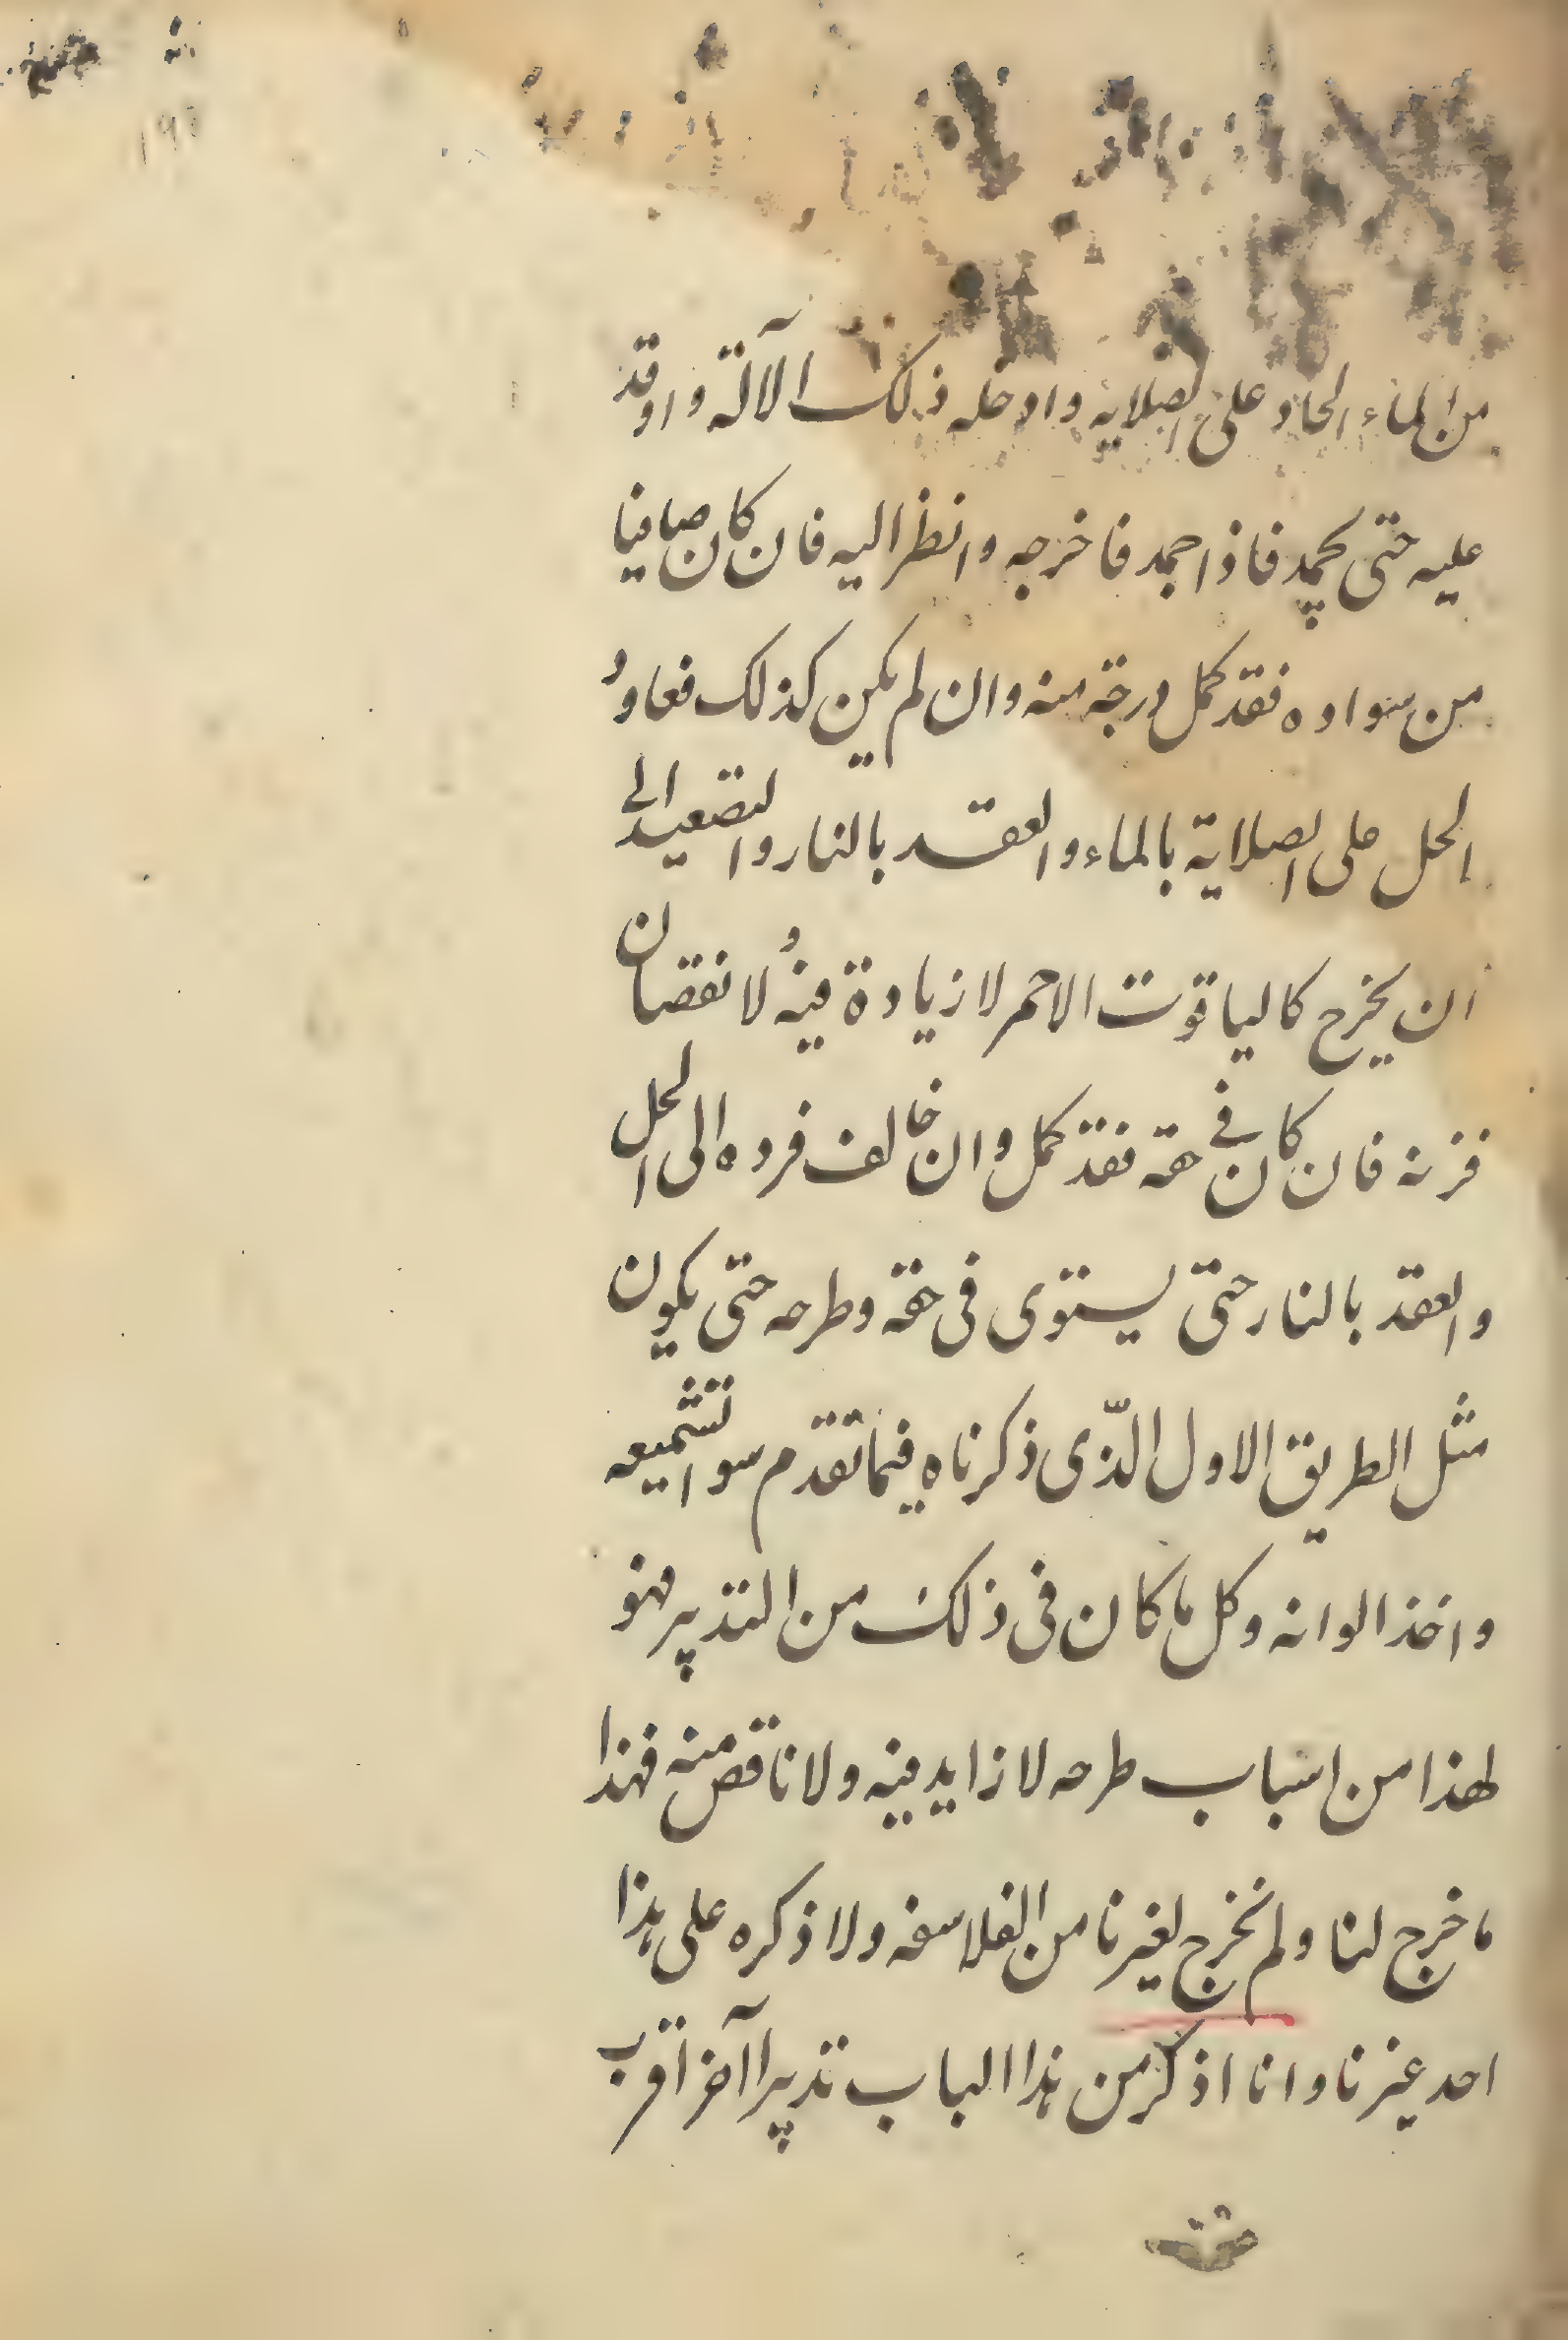 من الماء الحاد على الصلاية وادخله ذلك الآلة واوقد
عليه حتى يجمد فاذا جمد فاخرجه وانظر اليه فان كان صافيا
من سواده فقد كمل درجة منه وان لم يكن كذلك فعاود
الحل على الصلاية بالماء والعقد بالنار والتصعيد الى
ان يخرج كالياقوت الاحمر لا زيادة فيه ولا نقصان
فزنه فان كان في حقه فقد كمل وان خالف فرده الى الحل
والعقد بالنار حتى يستوى فى حقه وطرحه حتى يكون
مثل الطريق الاول الذّى ذكرناه فيما تقدم سوا تشميعه
واخذ الوانه وكل ما كان فى ذلك من التدبير فهو
لهذا من اسباب طرحه لا زايد فيه ولا ناقص منه فهذا
ما خرج لنا ولم يخرج لغيرنا من الفلاسفه ولا ذكره على هذا
احد غيرنا وانا اذكر من هذا الباب تدبيرا آخر اقرب